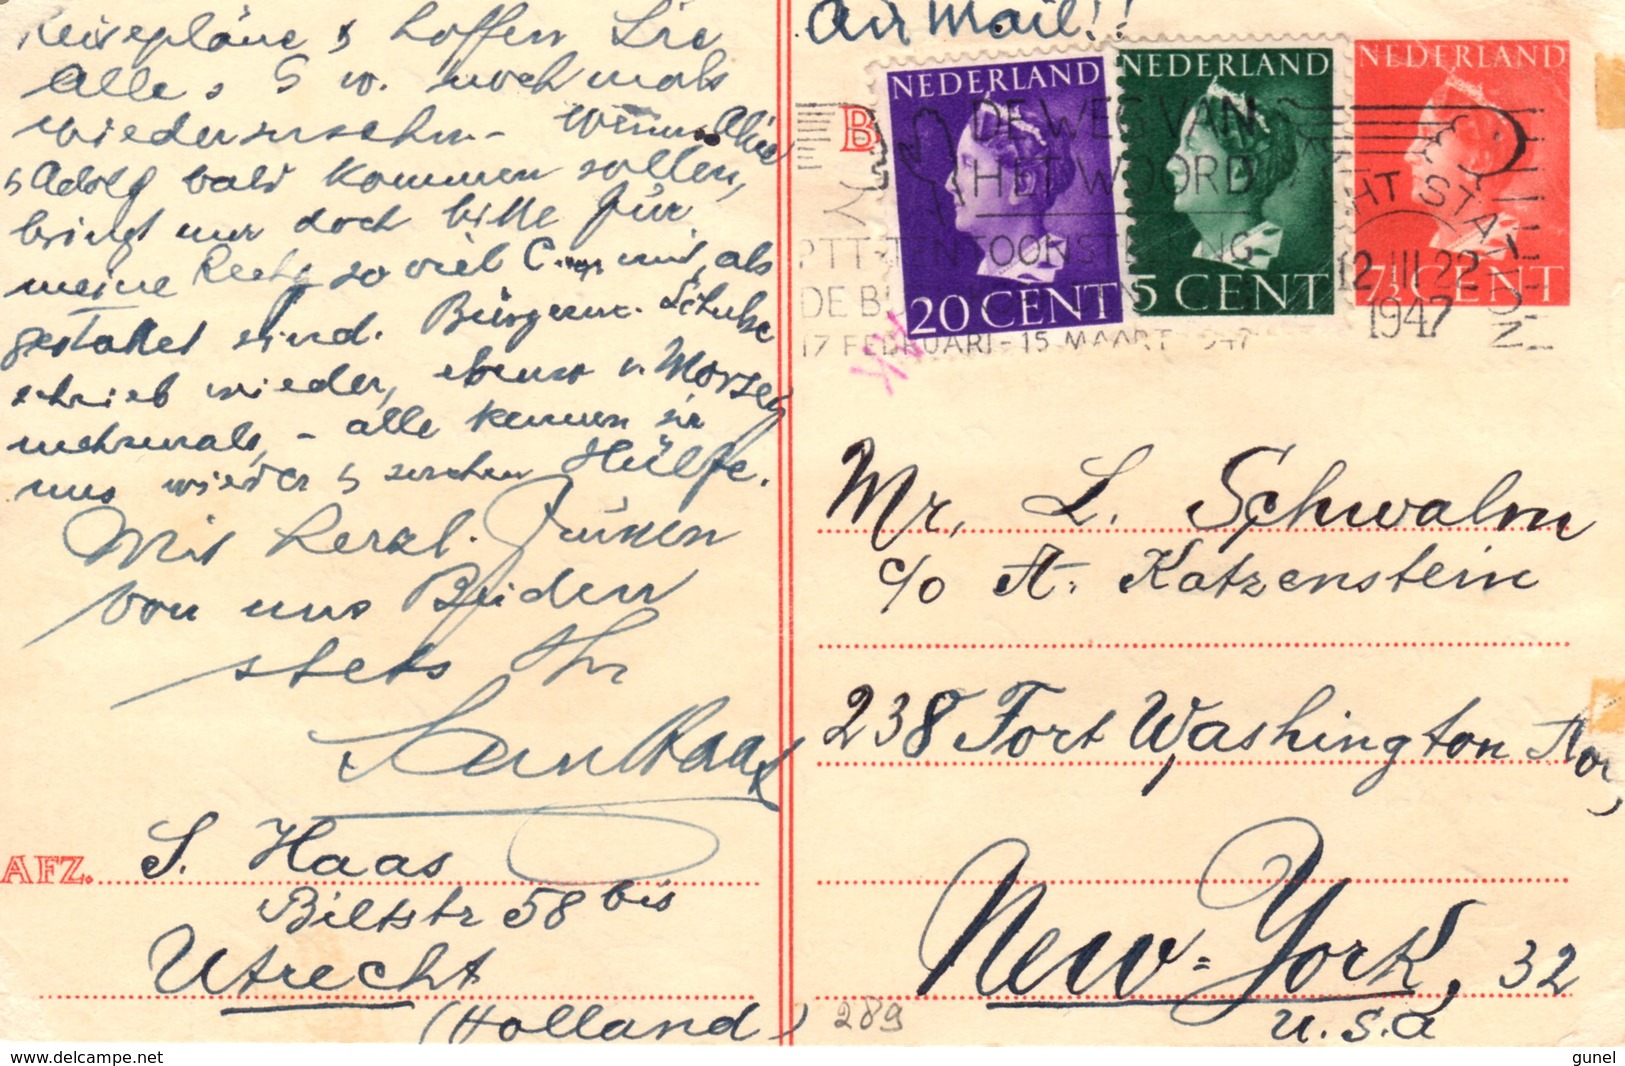 Reisepläne & hoffen Sie
alle, s. G. w. nochmals
wiederzusehn. - Wenn
& Adolf bald kommen sollen,
bringt nur doch bitte für
meine Rechg so viel mit, als
gestattet sind. Bürgerm. Schulze
schrieb wieder, ebenso v. Morzey
mehrmals, - alle kennen sie
uns wieder & suchen Hülfe.
Mit herzl. Grüssen
von uns Beiden
stets Ihr
Haas
AFZ. S. Haas
Biltstr 58 bis
Utrecht
(Holland)
Air Mail!!
NEDERLAND
20 CENT
NEDERLAND
5 CENT
NEDERLAND
7½ CENT
B
DE WEG VAN
HET WOORD
PTT-TENTOONSTELLING
17 FEBRUARI-15 MAART 1947
12.III.22
1947
Mr. L. Schwalm
c/o A. Katzenstein
238 Fort Washington Av,
New-York, 32
U.S.A
289
gunel
delcampe.net